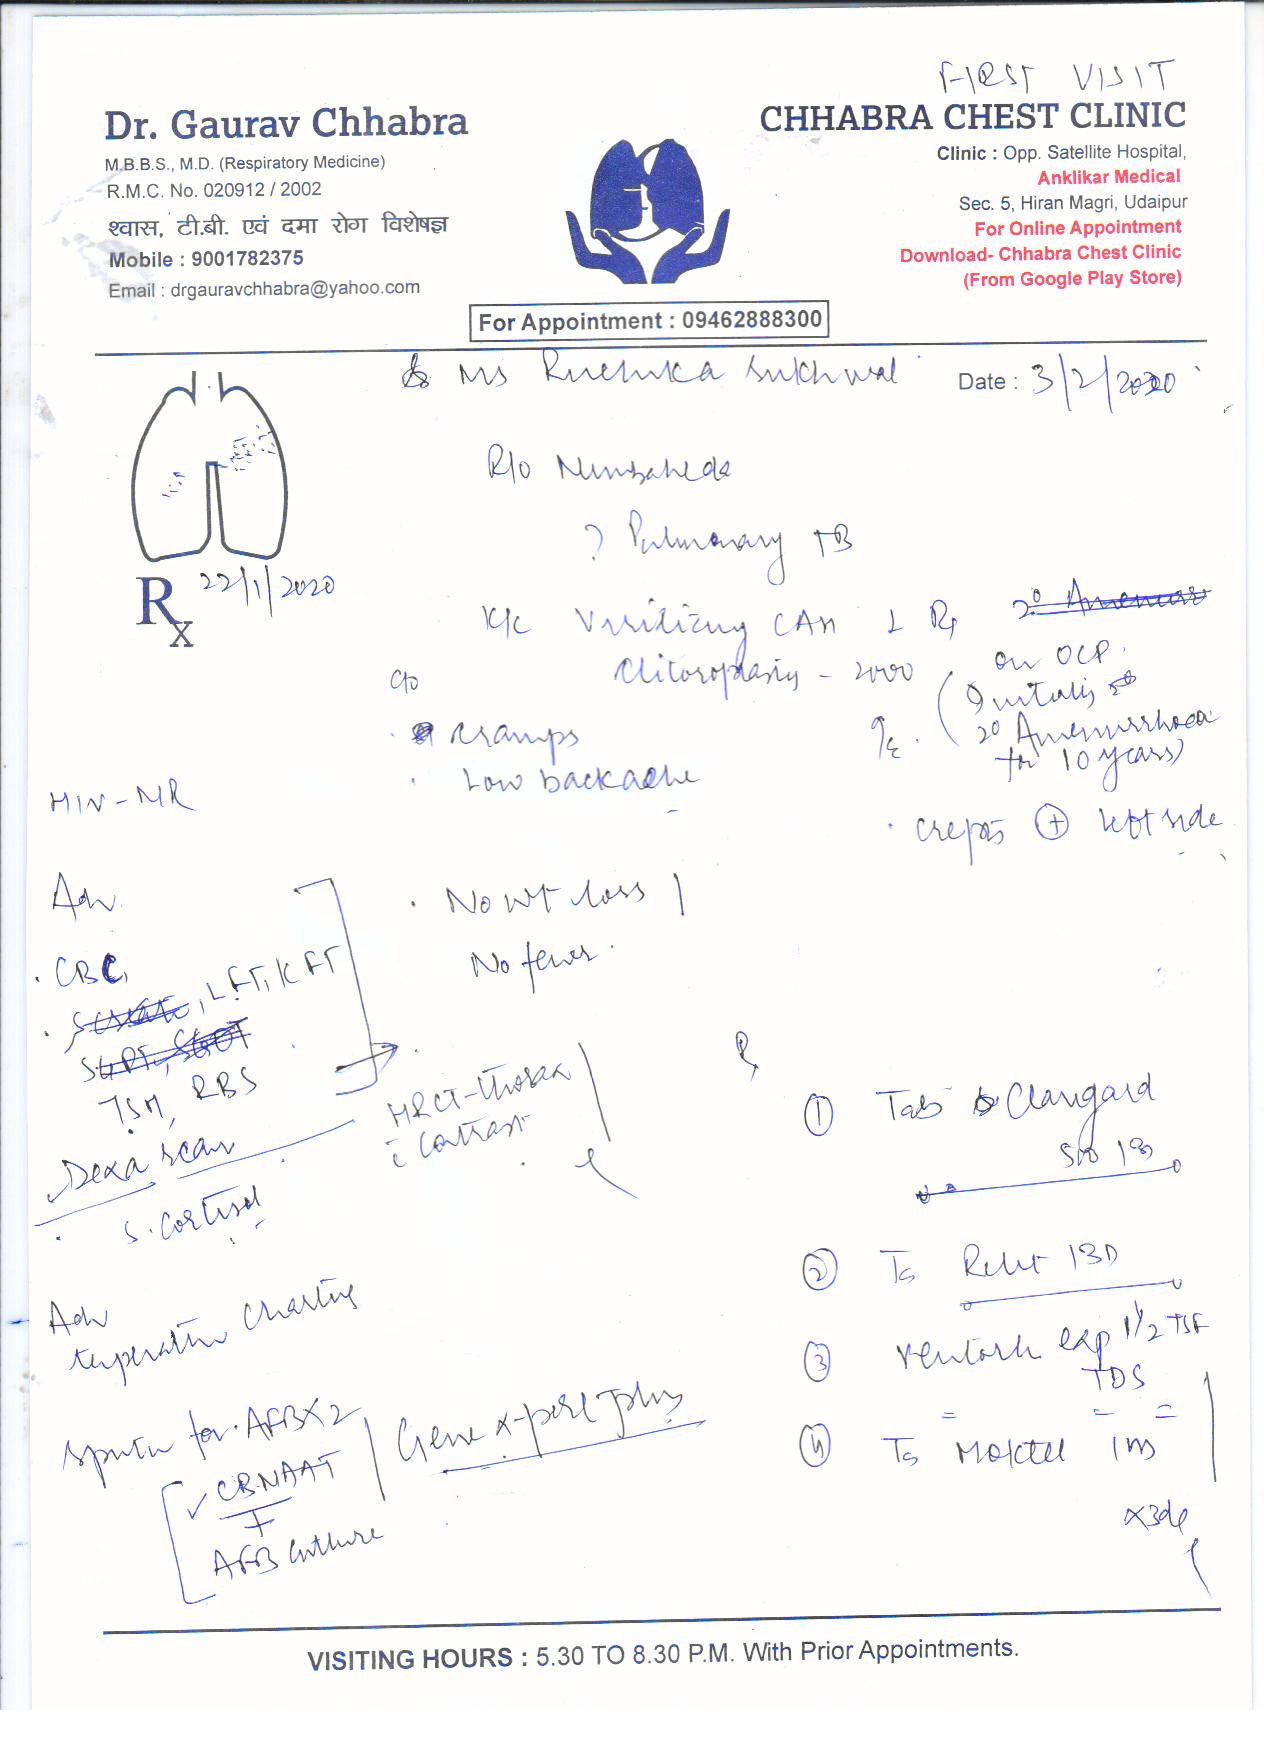 FIRST VISIT
Dr. Gaurav Chhabra
M.B.B.S., M.D. (Respiratory Medicine)
R.M.C. No. 020912 / 2002
श्वास, टी.बी. एवं दमा रोग विशेषज्ञ
Mobile : 9001782375
Email : drgauravchhabra@yahoo.com
CHHABRA CHEST CLINIC
Clinic : Opp. Satellite Hospital,
Anklikar Medical
Sec. 5, Hiran Magri, Udaipur
For Online Appointment
Download- Chhabra Chest Clinic
(From Google Play Store)
For Appointment : 09462888300
Ms Ruchika Sukhwal
Date : 3/2/2020
R/o Nimbaheda
? Pulmonary TB
Rx 22/1/2020
K/c Virilizing CAH
Clitoroplasty - 2000
on OCP.
(Initially
2° Amenorrhoea
for 10 years)
C/o
. Cramps
. Low backache
O/E .
. Creps + left side
HIV - NR
. No wt loss
No fever.
Adv
. CBC,
. LFT, KFT
TSH, RBS
Dexa scan
S. Cortisol
HRCT-thorax
c Contrast
Adv
temperature charting
Sputum for AFB X 2
CBNAAT
+
AFB Culture
Gene x-pert
R
1 Tab Clangard
500 1BD
2 Tb 1BD
3 Ventorlin exp 1 1/2 TSF
TDS
4 Tb
x3d
VISITING HOURS : 5.30 TO 8.30 P.M. With Prior Appointments.